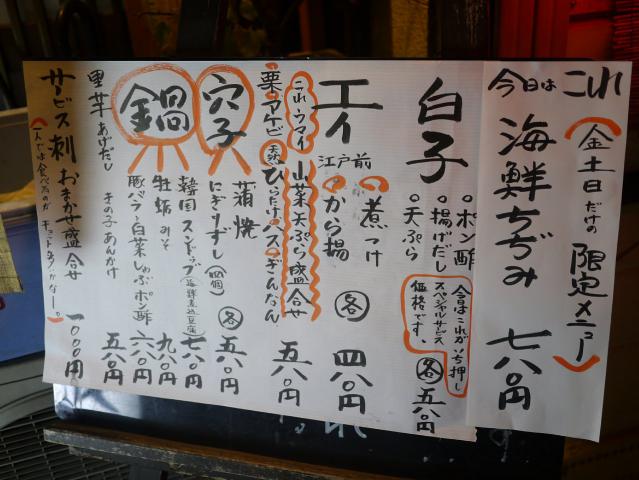 今日は これ
(金土日だけの 限定メニュー)
海鮮ちぢみ 七八〇円
白子
○ポン酢
○揚げだし
○天ぷら
今日はこれがイチ押し
スペシャルサービス
価格です。
各 五八〇円
エイ
江戸前
煮つけ
から揚
各 四八〇円
これ、ウマイ
山菜天ぷら盛合せ
栗 アケビ
天然 ひらたけ ハス ぎんなん
五八〇円
穴子
蒲焼
にぎりずし(四個)
各 五八〇円
鍋
韓国スンドゥブ(海鮮煮込豆腐) 七八〇円
牡蛎みそ 九八〇円
豚バラと白菜しゃぶポン酢 六八〇円
里芋あげだし きの子あんかけ 五八〇円
サービス刺おまかせ盛合せ 一〇〇〇円